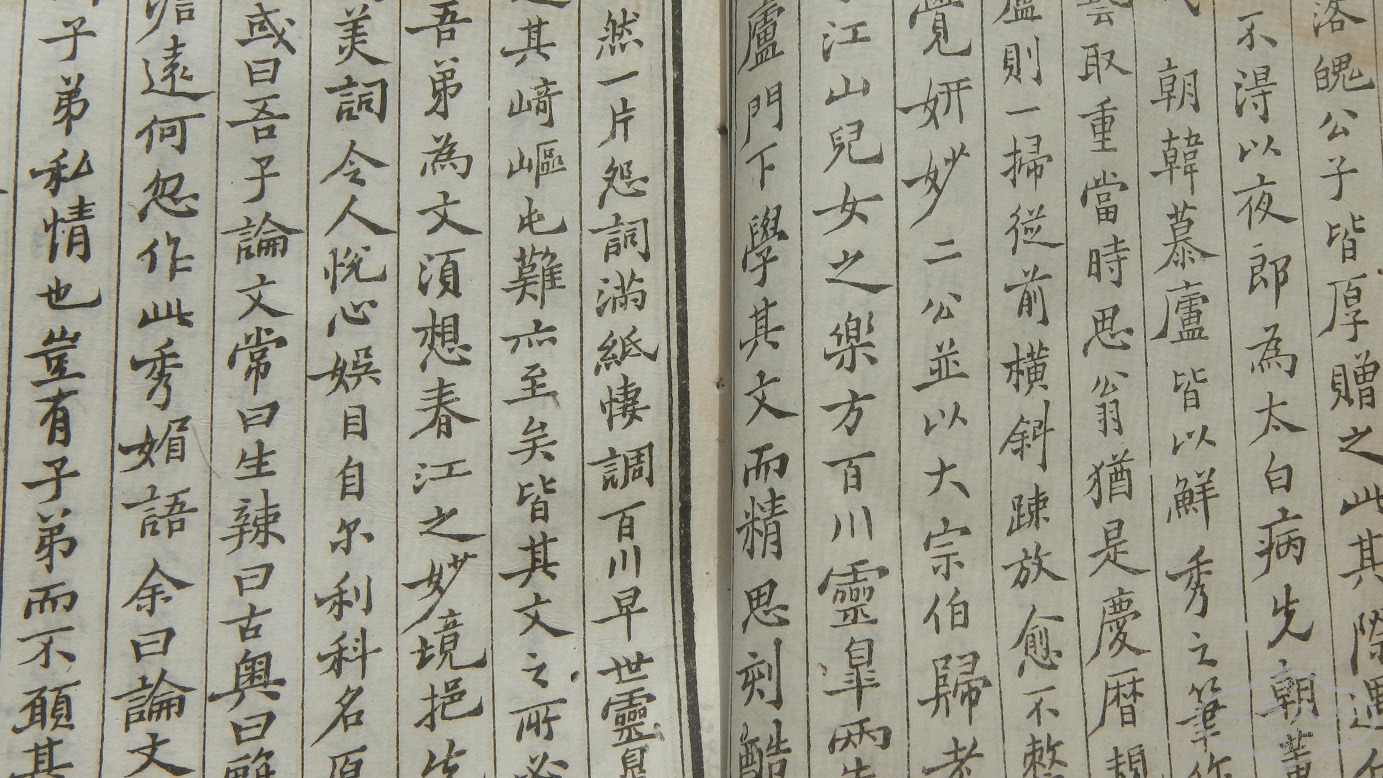 落魄公子皆厚贈之此其際遇
不淂以夜郎為太白病先朝
朝韓慕廬皆以鮮秀之筆作
取重當時思翁猶是慶曆
廬則一掃従前橫斜踈放愈不整
覺妍妙二公並以大宗伯歸老
江山兒女之樂方百川靈皐兩先
廬門下學其文而精思刻酷
然一片怨詞滿紙悽調百川早世靈皐
其﨑嶇屯難亦至矣皆其文之所必
吾弟為文湏想春江之妙境挹先
美詞令人悅心娛目自尔利科名
或曰吾子論文常曰生辣曰古奧曰離
遠何忽作此秀媚語余曰論文
子弟私情也豈有子弟而不頋其